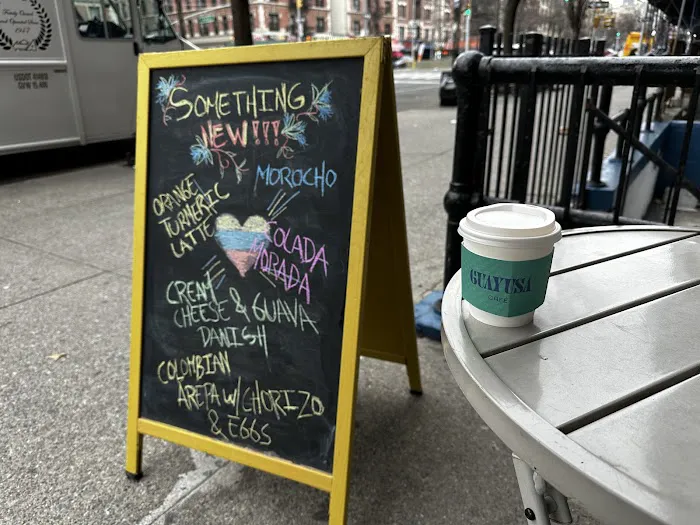 SOMETHING
NEW!!!
MOROCHO
ORANGE
TURMERIC
LATTE
COLADA
MORADA
CREAM
CHEESE & GUAVA
DANISH
COLOMBIAN
AREPA W/ CHORIZO
& EGGS
GUAYUSA
CAFE
1947